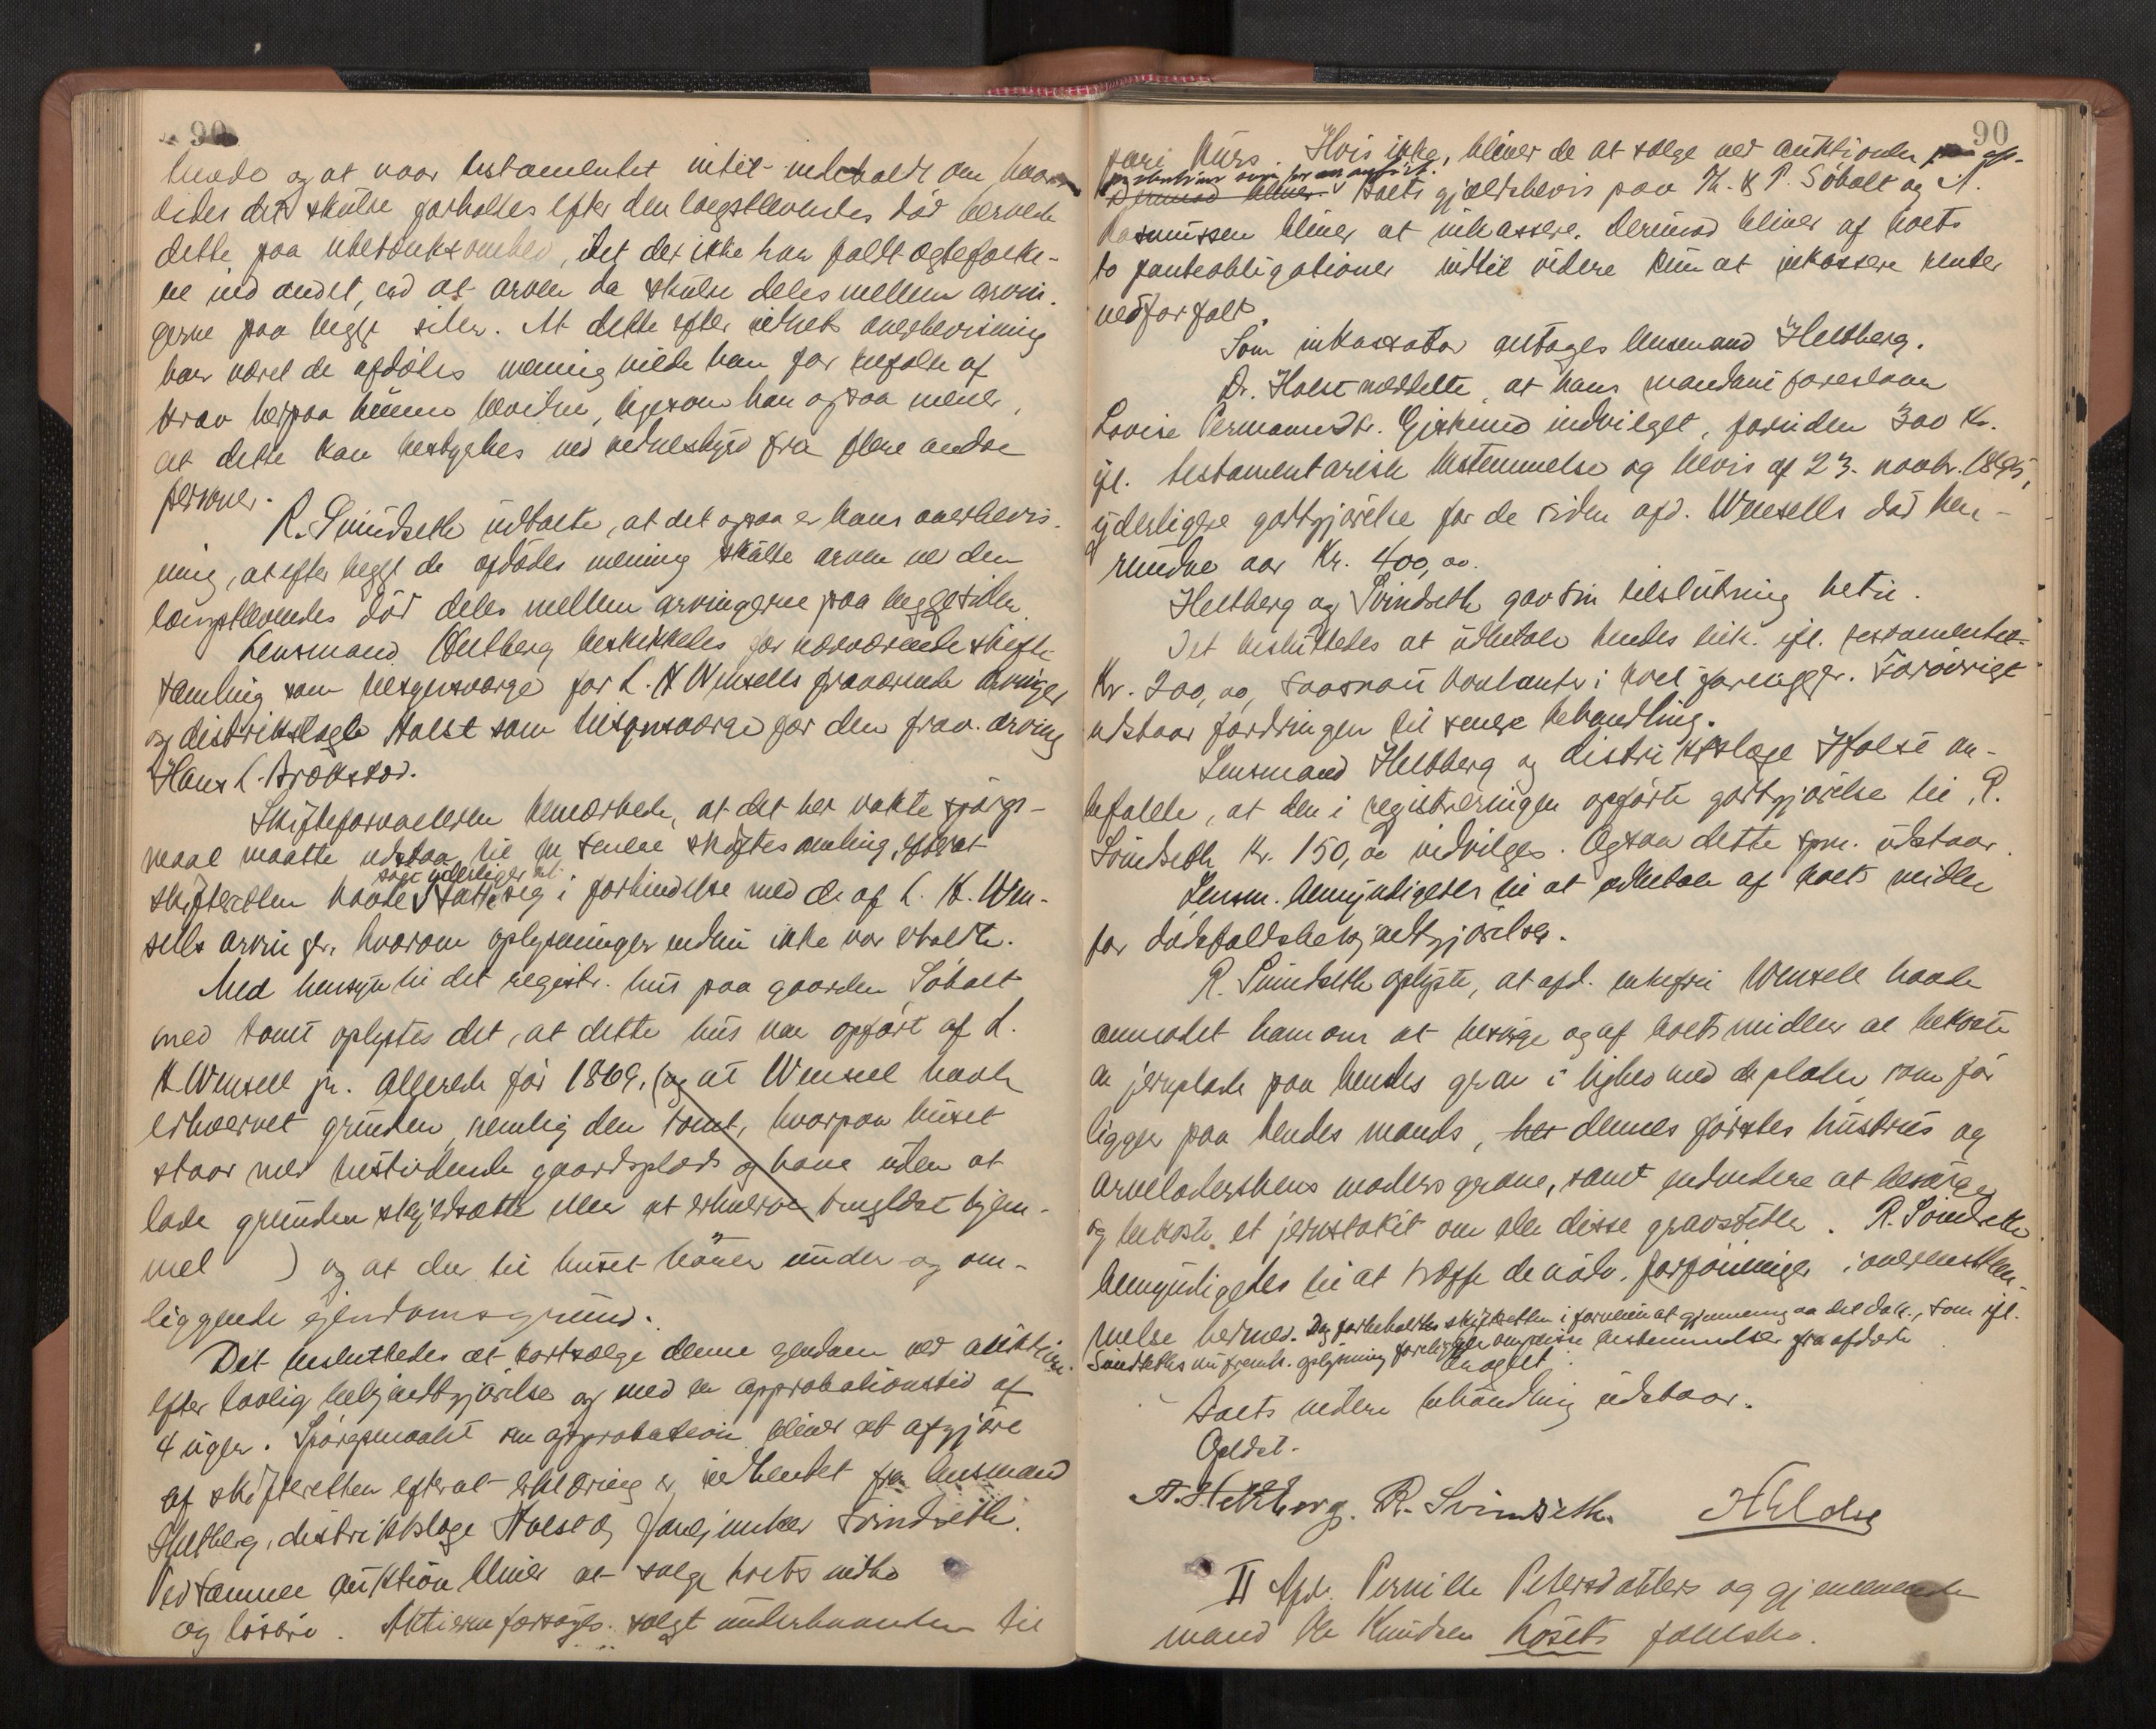 90
bundo og at naar testamentet intet indeholdt om hvor-
ledes det skulde forholdes efter den længstlevendes död beroede
dette paa ubetænksomhed, idet der ikke har faldt ægtefolke-
ne ind andet, end at arven da skulde deles mellem arvin-
gerne paa begge sider. At dette efter vidnets overbevisning
har været de afdödes mening vilde han for tilfælde af
krav herpaa kunne beedige, ligesom han ogsaa mener,
at dette kan bestyrkes ved vidnesbyrd fra flere andre
personer.
R. Svindseth udtalte, at det ogsaa er hans overbevis-
ning, at efter begge de afdödes mening skulde arven ved den
længstlevendes död deles mellem arvingerne paa begge sider.
Lensmand Heltberg beskikkedes for nærværende skifte-
samling som tilsynsværge for L. K Wensells fraværende arvinger
og distriktslæge Holst som tilsynsværge for den frav. arving
Hans L. Brokstad.
Skifteforvalteren bemærkede, at det her vakte spörgs-
maal maatte udstaa til en senere skiftesamling, efterat
skifteretten havde sögt yderligere at sætte sig i forbindelse med de af L. K. Wen-
sells arvinger, hvorom oplysninger endnu ikke var erholdt.
Med hensyn til det registr. hus paa gaarden Söholt
med tomt oplystes det, at dette hus var opfört af L.
K Wensell jr. allerede för 1869, (og at Wensell havde
erhvervet grunden, nemlig den tomt, hvorpaa huset
staar med tilstödende gaardsplads og have uden at
lade grunden skyldsætte eller at erhverve tinglæst hjem-
mel ) og at der til huset hörer under og om-
liggende ejendomsgrund.
Det besluttedes at bortsælge denne ejendom ved auktion
efter lovlig bekjendtgjörelse og med en approbationstid af
4 uger. Spörgsmaalet om approbation bliver at afgjöre
af skifteretten efterat erklæring er indhentet fra lensmand
Heltberg, distriktslæge Holst og Svindseth.
Ved samme auktion bliver at sælge boets indbo
og lösöre. Aktierne forsöges solgt underhaanden til
90
pari kurs. Hvis ikke, bliver de at sælge ved auktionen
Derimod bliver boets gjældsbevis paa K. & P. Söholt og A.
Rasmussen bliver at inkassere. Derimod bliver af boets
to panteobligationer indtil videre kun at inkassere renter
ved forfald.
Som inkassator antages lensmand Heltberg.
Dr. Holst meddelte, at hans mandant foreslaar
Lovise Permannsdr. Gjskund indvilget, foruden 300 Kr.
ifl. testamentarisk bestemmelse og bevis af 23. novbr. 1895,
yderligere godtgjörelse for de siden afd. Wensells död hen-
rundne aar Kr. 400,00.
Heltberg og Svindseth gav sin tilslutning hertil.
Det besluttedes at udbetale hendes tilk. ifl. testamentet
Kr. 200,00, saasnart kontanter i boet foreligger. Forövrigt
udstaar fordringen til senere behandling.
Lensmand Heltberg og distriktslæge Holst an-
befalede, at den i registreringen opförte godtgjörelse til R.
Svindseth Kr. 150,00 indvilges. Ogsaa dette spm. udstaar.
Lensm. bemyndigedes til at udbetale af boets midler
for dödsfaldsbekjendtgjörelser.
R. Svindseth oplyste, at afd. enkefru Wensell havde
anmodet ham om at besörge og af boets midler at bekoste
en jernplade paa hendes grav i lighed med de plader, som för
ligger paa hendes mands, dennes förstes hustrus og
arveladerskens moders grave, samt endvidere at besörge
og bekoste et jernstakit om alle disse gravsteder. R. Svindseth
bemyndigedes til at træffe de nödv. forföininger i overensstem-
melse hermed. Dog forbeholdtes skifteretten i forveien at gjennemgaa det dok., som ifl.
Svindseths nu fremk. oplysning foreligger om disse bestemmelser fra afdöde
Boets videre behandling udstaar.
Oplæst.
A. Heltberg. R. Svindseth.
II Afd. Pernille Petersdatters og gjenlevende
mand Ole Knudsen Rösets fællesbo.